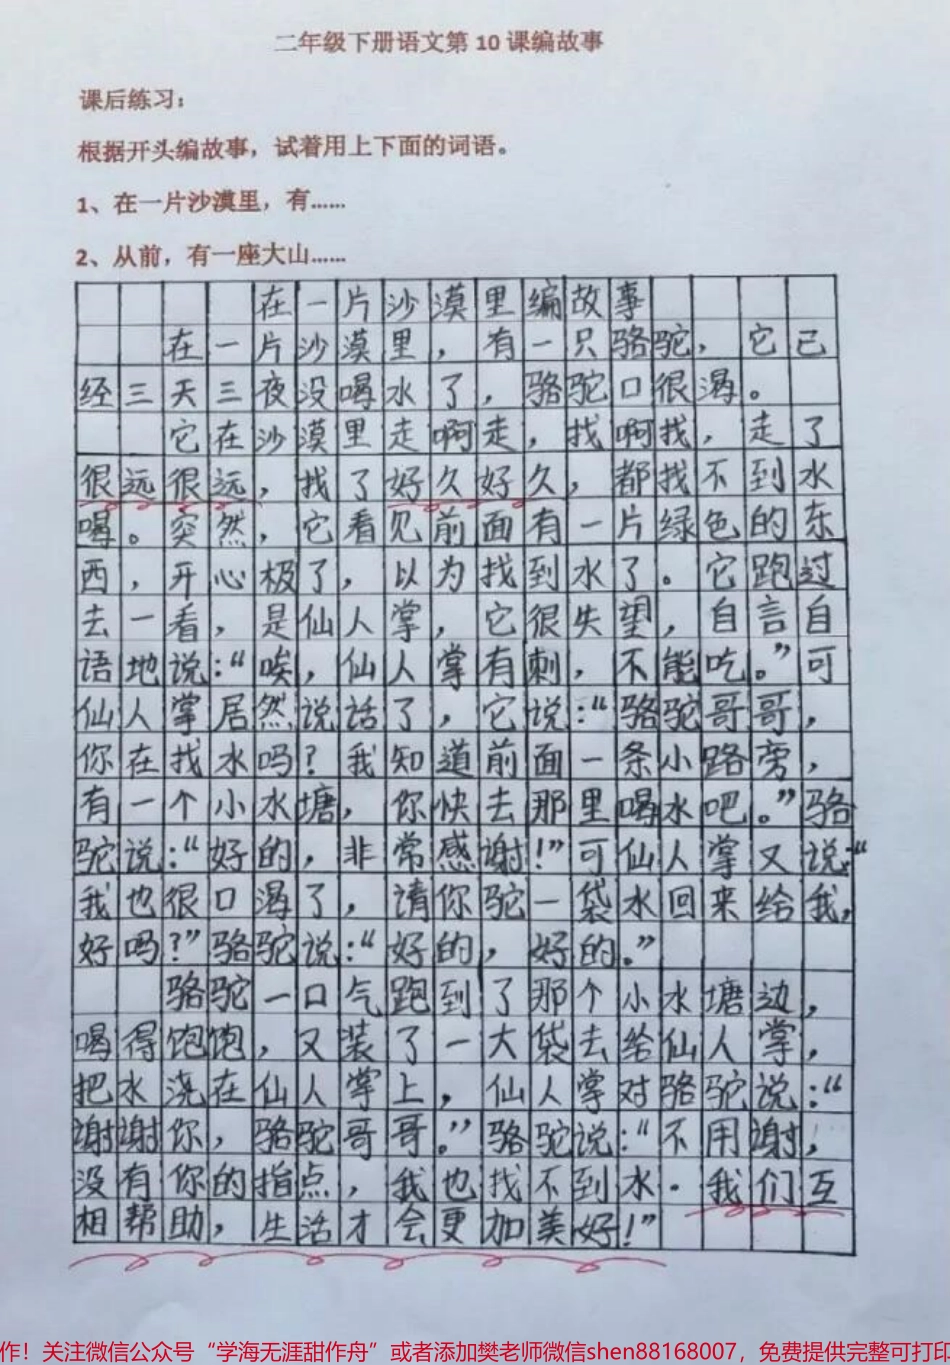 二年级下册语文第 10 课编故事
课后练习：
根据开头编故事，试着用上下面的词语。
1、在一片沙漠里，有……
2、从前，有一座大山……
在一片沙漠里编故事
在一片沙漠里，有一只骆驼，它已
经三天三夜没喝水了，骆驼口很渴。
它在沙漠里走啊走，找啊找，走了
很远很远，找了好久好久，都找不到水
喝。突然，它看见前面有一片绿色的东
西，开心极了，以为找到水了。它跑过
去一看，是仙人掌，它很失望，自言自
语地说：“唉，仙人掌有刺，不能吃。”可
仙人掌居然说话了，它说：“骆驼哥哥，
你在找水吗？我知道前面一条小路旁，
有一个小水塘，你快去那里喝水吧。”骆
驼说：“好的，非常感谢！”可仙人掌又说：“
我也很口渴了，请你驼一袋水回来给我，
好吗？”骆驼说：“好的，好的。”
骆驼一口气跑到了那个小水塘边，
喝得饱饱，又装了一大袋去给仙人掌，
把水浇在仙人掌上，仙人掌对骆驼说：“
谢谢你，骆驼哥哥。”骆驼说：“不用谢，
没有你的指点，我也找不到水。我们互
相帮助，生活才会更加美好！”
作！关注微信公众号“学海无涯甜作舟”或者添加樊老师微信shen88168007，免费提供完整可打印